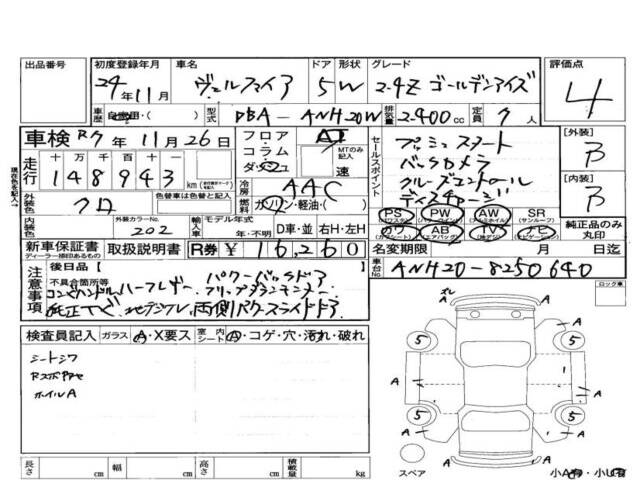 出品番号 初度登録年月 車名 ドア 形状 グレード 評価点
24年11月 ヴェルファイア 5 W 2.4Z ゴールデンアイズ 4
車歴 自家用・( ) 型式 DBA - ANH20W 排気量 2.400cc 定員 7人
車検 R7年 11月 26日 フロア AT
コラム MTのみ記入
ダ・シュ 速
走行 十万千百十一
148943 km
セールスポイント プッシュスタート
バックカメラ
クルーズコントロール
[外装] B
[内装] B
外装色 クロ 色替車は色替と記入
冷房 AAC
燃料 ガソリン・軽油・( )
内装色 外装カラー 202 輸入車 モデル年式 年・不明 D車・並 右H・左H
PS PW AW SR(サンルーフ)
AB TV ナビ 純正品のみ丸印
新車保証書 ディーラー捺印あるもの 取扱説明書 R券 ¥16,260
名変期限 月 日迄
車台No. ANH20-8250640
注意事項 後日品[ ] パワーバックドア
不具合箇所等 コンビハンドル ハーフレザー フリップダウンモニター
純正TV 地デジフルセグ 両側パワースライドドア
ロック車
検査員記入 ガラス A・X要ス 室内シート A・コゲ・穴・汚れ・破れ
シートシワ
ホイルA
A A A A A A A A
5 5 5 5
長さ cm 幅 cm 高さ cm 積載量 kg
スペア 小A有・小U有